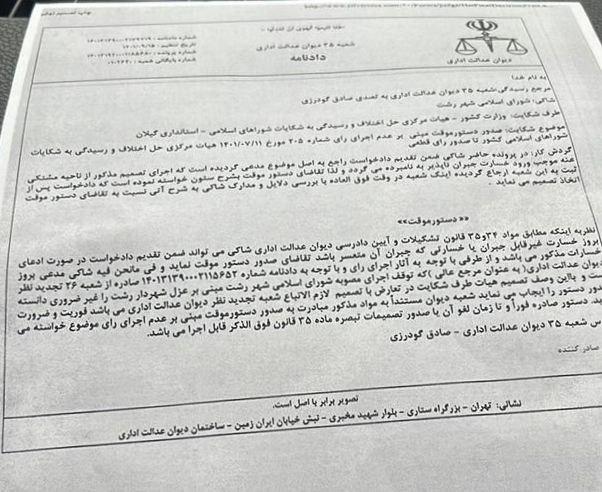 چاپ تصمیم نهایی
شعبه ۳۵ دیوان عدالت اداری
دادنامه
دیوان عدالت اداری
شماره دادنامه :
تاریخ تنظیم : ۱۴۰۱/۰۹/۱۵
شماره پرونده :
شماره بایگانی شعبه :
به نام خدا
مرجع رسیدگی:شعبه ۳۵ دیوان عدالت اداری به تصدی صادق گودرزی
شاکی:شورای اسلامی شهر رشت
طرف شکایت: وزارت کشور - هیات مرکزی حل اختلاف و رسیدگی به شکایات شوراهای اسلامی - استانداری گیلان
موضوع شکایت: صدور دستورموقت مبنی بر عدم اجرای رای شماره ۲۰۵ مورخ ۱۴۰۱/۰۷/۱۱ هیات مرکزی حل اختلاف و رسیدگی به شکایات
شوراهای اسلامی کشور تا صدور رای قطعی
گردش کار: در پرونده حاضر شاکی ضمن تقدیم دادخواست راجع به اصل موضوع مدعی گردیده است که اجرای تصمیم مذکور از ناحیه مشتکی
عنه موجب ورود خسارت جبران ناپذیر به نامبرده می گردد و لذا تقاضای دستور موقت بشرح ستون خواسته نموده است که دادخواست پس از
ثبت به این شعبه ارجاع گردیده اینک شعبه در وقت فوق العاده با بررسی دلایل و مدارک شاکی به شرح آتی نسبت به تقاضای دستور موقت
اتخاذ تصمیم می نماید .
«دستورموقت»
نظربه اینکه مطابق مواد ۳۴و۳۵ قانون تشکیلات و آیین دادرسی دیوان عدالت اداری شاکی می تواند ضمن تقدیم دادخواست در صورت ادعای
بروز خسارت غیرقابل جبران یا خسارتی که جبران آن متعسر باشد تقاضای صدور دستور موقت نماید و فی مانحن فیه شاکی مدعی بروز
خسارات مذکور می باشد و از طرفی با توجه به آثار اجرای رای و با توجه به دادنامه شماره ۱۴۰۱۳۱۳۹۰۰۰۲۱۱۵۶۵۲ صادره از شعبه ۲۶ تجدید نظر
دیوان عدالت اداری( به عنوان مرجع عالی )که توقف اجرای مصوبه شورای اسلامی شهر رشت مبنی بر عزل شهردار رشت را غیر ضروری دانسته
است و بااین وصف تصمیم هیات طرف شکایت در تعارض با تصمیم لازم الاتباع شعبه تجدید نظر دیوان عدالت اداری می باشد فوریت و ضرورت
دور دستور را ایجاب می نماید شعبه دیوان مستنداً به مواد مذکور مبادرت به صدور دستورموقت مبنی بر عدم اجرای رای موضوع خواسته می
ید. دستور صادره فوراً و تا زمان لغو آن یا صدور تصمیمات تبصره ماده ۳۵ قانون فوق الذکر قابل اجرا می باشد.
س شعبه ۳۵ دیوان عدالت اداری - صادق گودرزی
صادر کننده
تصویر برابر با اصل است.
نشانی: تهران - بزرگراه ستاری - بلوار شهید مخبری - نبش خیابان ایران زمین - ساختمان دیوان عدالت اداری